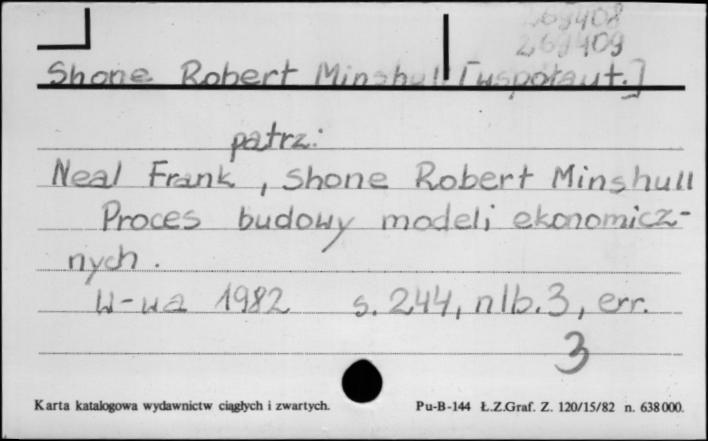 269408
269409
Shone Robert Minshull [współaut.]
patrz:
Neal Frank, Shone Robert Minshull
Proces budowy modeli ekonomicz-
nych.
W-wa 1982 s. 244, nlb. 3, err.
3
Karta katalogowa wydawnictw ciągłych i zwartych. Pu-B-144 Ł.Z.Graf. Z. 120/15/82 n. 638000.